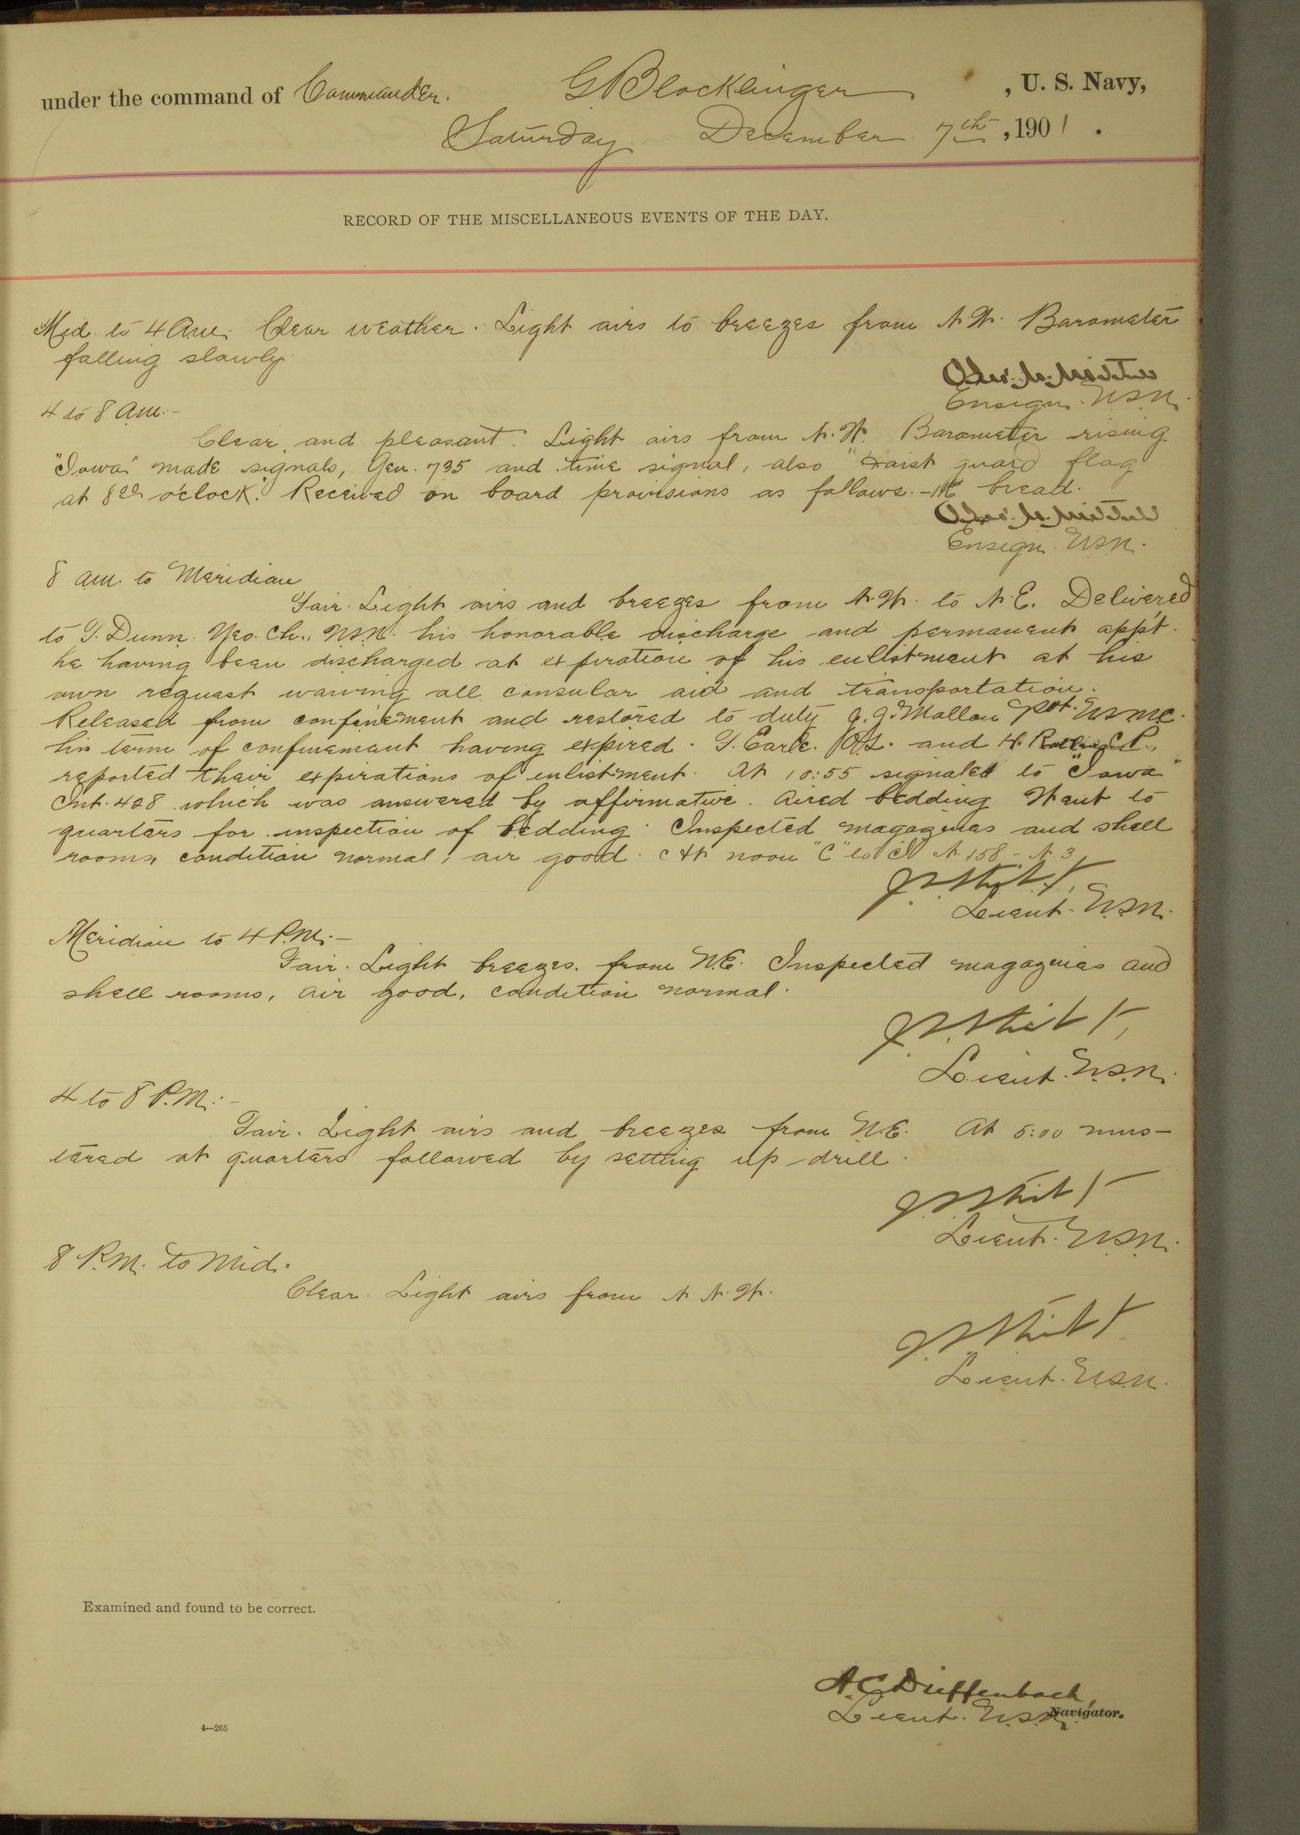 under the command of Commander. G Blocklinger , U. S. Navy,
Saturday December 7th , 1901 .
RECORD OF THE MISCELLANEOUS EVENTS OF THE DAY.
Mid. to 4 a.m. Clear weather. Light airs to breezes from N.W. Barometer
falling slowly.
Ensign. U.S.N.
4 to 8 a.m.-
Clear and pleasant. Light airs from N.W. Barometer rising
"Iowa" made signals, Gen. 735 and time signal, also "Hoist guard flag
at 8 o'clock." Received on board provisions as follows.- bread.
Ensign. U.S.N.
8 a.m. to Meridian
Fair. Light airs and breezes from N.W. to N.E. Delivered
to T. Dunn. Yeo. Ch., U.S.N. his honorable discharge and permanent app't.
he having been discharged at expiration of his enlistment at his
own request waiving all consular aid and transportation.
Released from confinement and restored to duty J. J. Mallon Pvt. U.S.M.C.
his term of confinement having expired. T. Earle. and H. C.P.,
reported their expirations of enlistment. At 10:55 signaled to "Iowa"
Int. 428 which was answered by affirmative. Aired bedding Went to
quarters for inspection of bedding. Inspected magazines and shell
rooms, condition normal, air good. At noon "C" to N. 158 - N 3
Lieut. U.S.N.
Meridian to 4 P.M.-
Fair. Light breezes from N.E. Inspected magazines and
shell rooms, air good, condition normal.
Lieut. U.S.N.
4 to 8 P.M.:-
Fair. Light airs and breezes from N.E. At 5:00 mus-
tered at quarters followed by setting up drill.
Lieut. U.S.N.
8 P.M. to Mid.
Clear. Light airs from N.N.W.
Lieut. U.S.N.
Examined and found to be correct.
A.C. Dieffenbach,
Lieut. U.S.N. Navigator.
4—265